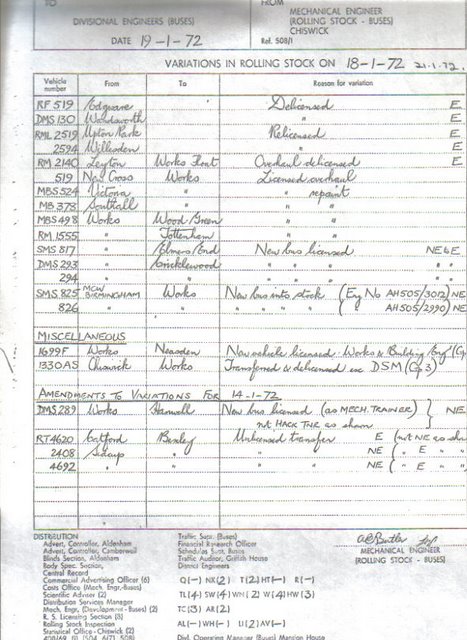 TO FROM
DIVISIONAL ENGINEERS (BUSES) MECHANICAL ENGINEER
(ROLLING STOCK - BUSES)
CHISWICK
DATE 19-1-72 Ref. 508/1
VARIATIONS IN ROLLING STOCK ON 18-1-72 21.1.72.
Vehicle number From To Reason for variation
RF 519 Edgware Delicensed E
DMS 130 Wandsworth " E
RML 2519 Upton Park Relicensed E
2594 Willesden " E
RM 2140 Leyton Works Float Overhaul delicensed E
519 New Cross Works Licensed overhaul
MBS 524 Victoria " " repaint
MB 378 Southall " " "
MBS 498 Works Wood Green " "
RM 1555 " Tottenham " "
SMS 817 " Elmers End New bus licensed NE & E
DMS 293 " Cricklewood " " " " "
294 " " " " " " "
SMS 825 MCW BIRMINGHAM Works New bus into stock (Eng No AH505/3012) NE
826 " " " " " ( " " AH505/2990) NE
MISCELLANEOUS
1699F Works Neasden New vehicle licensed Works & Building Eng
1330AS Chiswick Works Transferred & delicensed exc DSM (Gp 3)
AMENDMENTS TO VARIATIONS FOR 14-1-72.
DMS 289 Works Hanwell New bus licensed (as MECH. TRAINER) NE
not HACK TNR as shown
RT 4620 Catford Bexley Unlicensed transfer E (not NE as shown
2408 Sidcup " " NE ( " E " "
4692 " " " NE ( " E " "
DISTRIBUTION
Advert. Controller, Aldenham
Advert. Controller, Camberwell
Blinds Section, Aldenham
Body Spec. Section,
Central Record
Commercial Advertising Officer (6)
Costs Office (Mech. Engr.-Buses)
Scientific Adviser (2)
Distribution Services Manager
Mech. Engr. (Development - Buses) (2)
R. S. Licensing Section (3)
Rolling Stock Inspection
Statistical Office - Chiswick (2)
Traffic Supt. (Buses)
Financial Research Officer
Schedules Supt. Buses
Traffic Auditor, Griffith House
District Engineers
Q(-) NX(2) T(2) HT(-) R(-)
TL(4) SW(4) WH(2) W(4) HW(3)
TC(3) AR(2)
AL(-) WH(-) U(2) AV(-)
Divl. Operating Manager (Buses) Mansion House
MECHANICAL ENGINEER
(ROLLING STOCK - BUSES)